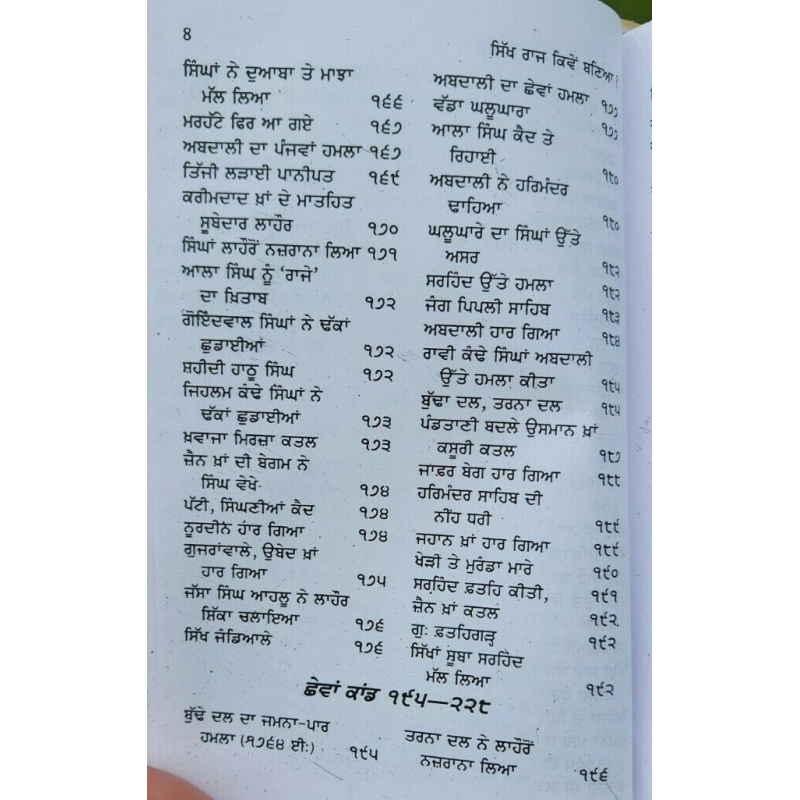 8
ਸਿੱਖ ਰਾਜ ਕਿਵੇਂ ਬਣਿਆ
ਸਿੰਘਾਂ ਨੇ ਦੁਆਬਾ ਤੇ ਮਾਝਾ
ਮੱਲ ਲਿਆ ੧੬੬
ਮਰਹੱਟੇ ਫਿਰ ਆ ਗਏ ੧੬੭
ਅਬਦਾਲੀ ਦਾ ਪੰਜਵਾਂ ਹਮਲਾ ੧੬੭
ਤਿੱਜੀ ਲੜਾਈ ਪਾਨੀਪਤ ੧੬੯
ਕਰੀਮਦਾਦ ਖ਼ਾਂ ਦੇ ਮਾਤਹਿਤ
ਸੂਬੇਦਾਰ ਲਾਹੌਰ ੧੭੦
ਸਿੰਘਾਂ ਲਾਹੌਰੋਂ ਨਜ਼ਰਾਨਾ ਲਿਆ ੧੭੧
ਆਲਾ ਸਿੰਘ ਨੂੰ ‘ਰਾਜੇ’
ਦਾ ਖ਼ਿਤਾਬ ੧੭੨
ਗੋਇੰਦਵਾਲ ਸਿੰਘਾਂ ਨੇ ਢੱਕਾਂ
ਛੁਡਾਈਆਂ ੧੭੨
ਸ਼ਹੀਦੀ ਹਾਠੂ ਸਿੰਘ ੧੭੨
ਜਿਹਲਮ ਕੰਢੇ ਸਿੰਘਾਂ ਨੇ
ਢੱਕਾਂ ਛੁਡਾਈਆਂ ੧੭੩
ਖ਼ਵਾਜਾ ਮਿਰਜ਼ਾ ਕਤਲ ੧੭੩
ਜ਼ੈਨ ਖ਼ਾਂ ਦੀ ਬੇਗਮ ਨੇ
ਸਿੰਘ ਵੇਖੇ ੧੭੪
ਪੱਟੀ, ਸਿੰਘਣੀਆਂ ਕੈਦ ੧੭੪
ਨੂਰਦੀਨ ਹਾਰ ਗਿਆ ੧੭੪
ਗੁਜਰਾਂਵਾਲੇ, ਉਬੇਦ ਖ਼ਾਂ
ਹਾਰ ਗਿਆ ੧੭੫
ਜੱਸਾ ਸਿੰਘ ਆਹਲੂ ਨੇ ਲਾਹੌਰ
ਸਿੱਕਾ ਚਲਾਇਆ ੧੭੬
ਸਿੱਖ ਜੰਡਿਆਲੇ ੧੭੬
ਅਬਦਾਲੀ ਦਾ ਛੇਵਾਂ ਹਮਲਾ ੧੭੭
ਵੱਡਾ ਘਲੂਘਾਰਾ ੧੭੭
ਆਲਾ ਸਿੰਘ ਕੈਦ ਤੇ
ਰਿਹਾਈ ੧੮੦
ਅਬਦਾਲੀ ਨੇ ਹਰਿਮੰਦਰ
ਢਾਹਿਆ ੧੮੦
ਘਲੂਘਾਰੇ ਦਾ ਸਿੰਘਾਂ ਉੱਤੇ
ਅਸਰ ੧੮੨
ਸਰਹਿੰਦ ਉੱਤੇ ਹਮਲਾ ੧੮੨
ਜੰਗ ਪਿਪਲੀ ਸਾਹਿਬ ੧੮੩
ਅਬਦਾਲੀ ਹਾਰ ਗਿਆ ੧੮੪
ਰਾਵੀ ਕੰਢੇ ਸਿੰਘਾਂ ਅਬਦਾਲੀ
ਉੱਤੇ ਹਮਲਾ ਕੀਤਾ ੧੮੫
ਬੁੱਢਾ ਦਲ, ਤਰਨਾ ਦਲ ੧੮੫
ਪੰਡਤਾਣੀ ਬਦਲੇ ਉਸਮਾਨ ਖ਼ਾਂ
ਕਸੂਰੀ ਕਤਲ ੧੮੭
ਜਾਫ਼ਰ ਬੇਗ ਹਾਰ ਗਿਆ ੧੮੮
ਹਰਿਮੰਦਰ ਸਾਹਿਬ ਦੀ
ਨੀਂਹ ਧਰੀ ੧੮੯
ਜਹਾਨ ਖ਼ਾਂ ਹਾਰ ਗਿਆ ੧੮੯
ਖੇੜੀ ਤੇ ਮੁਰੰਡਾ ਮਾਰੇ ੧੯੦
ਸਰਹਿੰਦ ਫ਼ਤਹਿ ਕੀਤੀ, ੧੯੧
ਜ਼ੈਨ ਖ਼ਾਂ ਕਤਲ ੧੯੨
ਗੁਃ ਫ਼ਤਹਿਗੜ੍ਹ ੧੯੨
ਸਿੱਖਾਂ ਸੂਬਾ ਸਰਹਿੰਦ
ਮੱਲ ਲਿਆ ੧੯੨
ਛੇਵਾਂ ਕਾਂਡ ੧੯੫—੨੨੮
ਬੁੱਢੇ ਦਲ ਦਾ ਜਮਨਾ-ਪਾਰ
ਹਮਲਾ (੧੭੬੪ ਈਃ) ੧੯੫
ਤਰਨਾ ਦਲ ਨੇ ਲਾਹੌਰੋਂ
ਨਜ਼ਰਾਨਾ ਲਿਆ ੧੯੬